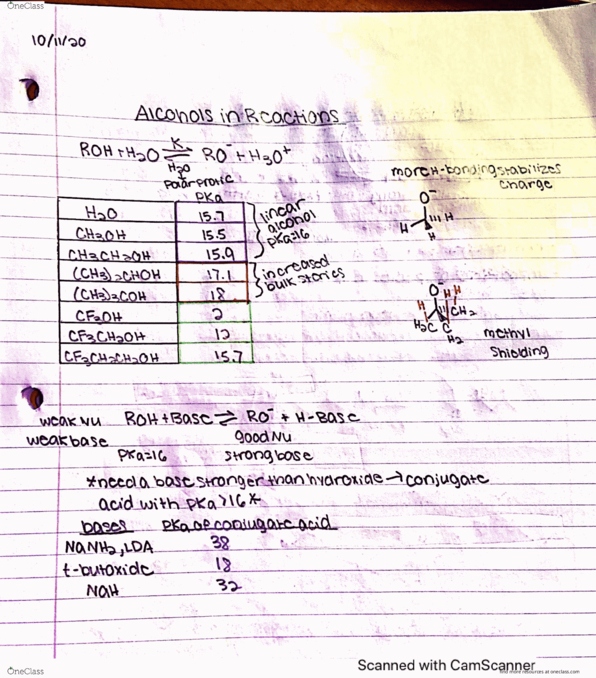 OneClass
10/11/20
Alcohols in Reactions
ROH + H₂O ⇌ RO⁻ + H₃O⁺
K
H₂O
Polar protic
PKa
H₂O 15.7
CH₃OH 15.5
CH₃CH₂OH 15.9
(CH₃)₂CHOH 17.1
(CH₃)₃COH 18
CF₃OH 2
CF₃CH₂OH 12
CF₃CH₂CH₂OH 15.7
linear
alcohol
pKa=16
increased
bulk sterics
more H-bonding stabilizes
charge
O⁻
H H
H
O H H
H CH₂
H₂C C
H₂
methyl
Shielding
weak Nu ROH + Base ⇌ RO⁻ + H-Base
weak base good Nu
PKa=16 strong base
*need a base stronger than hydroxide → conjugate
acid with pKa >16*
bases pKa of conjugate acid
NaNH₂, LDA 38
t-butoxide 18
NaH 32
Scanned with CamScanner
OneClass
find more resources at oneclass.com